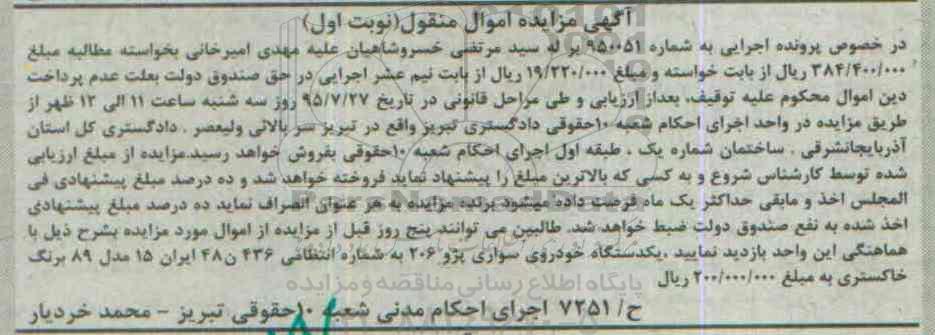 آگهی مزایده اموال منقول(نوبت اول)
در خصوص پرونده اجرایی به شماره ۹۵۰۰۵۱ بر له سید مرتضی خسروشاهیان علیه مهدی امیرخانی بخواسته مطالبه مبلغ
۳۸۴/۴۰۰/۰۰۰ ریال از بابت خواسته و مبلغ ۱۹/۲۲۰/۰۰۰ ریال از بابت نیم عشر اجرایی در حق صندوق دولت بعلت عدم پرداخت
دین اموال محکوم علیه توقیف، بعداز ارزیابی و طی مراحل قانونی در تاریخ ۹۵/۷/۲۷ روز سه شنبه ساعت ۱۱ الی ۱۲ ظهر از
طریق مزایده در واحد اجرای احکام شعبه ۱۰حقوقی دادگستری تبریز واقع در تبریز سر بالائی ولیعصر . دادگستری کل استان
آذربایجانشرقی . ساختمان شماره یک . طبقه اول اجرای احکام شعبه ۱۰حقوقی بفروش خواهد رسید.مزایده از مبلغ ارزیابی
شده توسط کارشناس شروع و به کسی که بالاترین مبلغ را پیشنهاد نماید فروخته خواهد شد و ده درصد مبلغ پیشنهادی فی
المجلس اخذ و مابقی حداکثر یک ماه فرصت داده میشود برنده مزایده به هر عنوان انصراف نماید ده درصد مبلغ پیشنهادی
اخذ شده به نفع صندوق دولت ضبط خواهد شد. طالبین می توانند پنج روز قبل از مزایده از اموال مورد مزایده بشرح ذیل با
هماهنگی این واحد بازدید نمایید .یکدستگاه خودروی سواری پژو ۲۰۶ به شماره انتظامی ۴۳۶ ن۴۸ ایران ۱۵ مدل ۸۹ برنگ
خاکستری به مبلغ ۲۰۰/۰۰۰/۰۰۰ ریال
پایگاه اطلاع رسانی مناقصه و مزایده
ح/ ۷۲۵۱ اجرای احکام مدنی شعبه ۱۰حقوقی تبریز - محمد خردیار